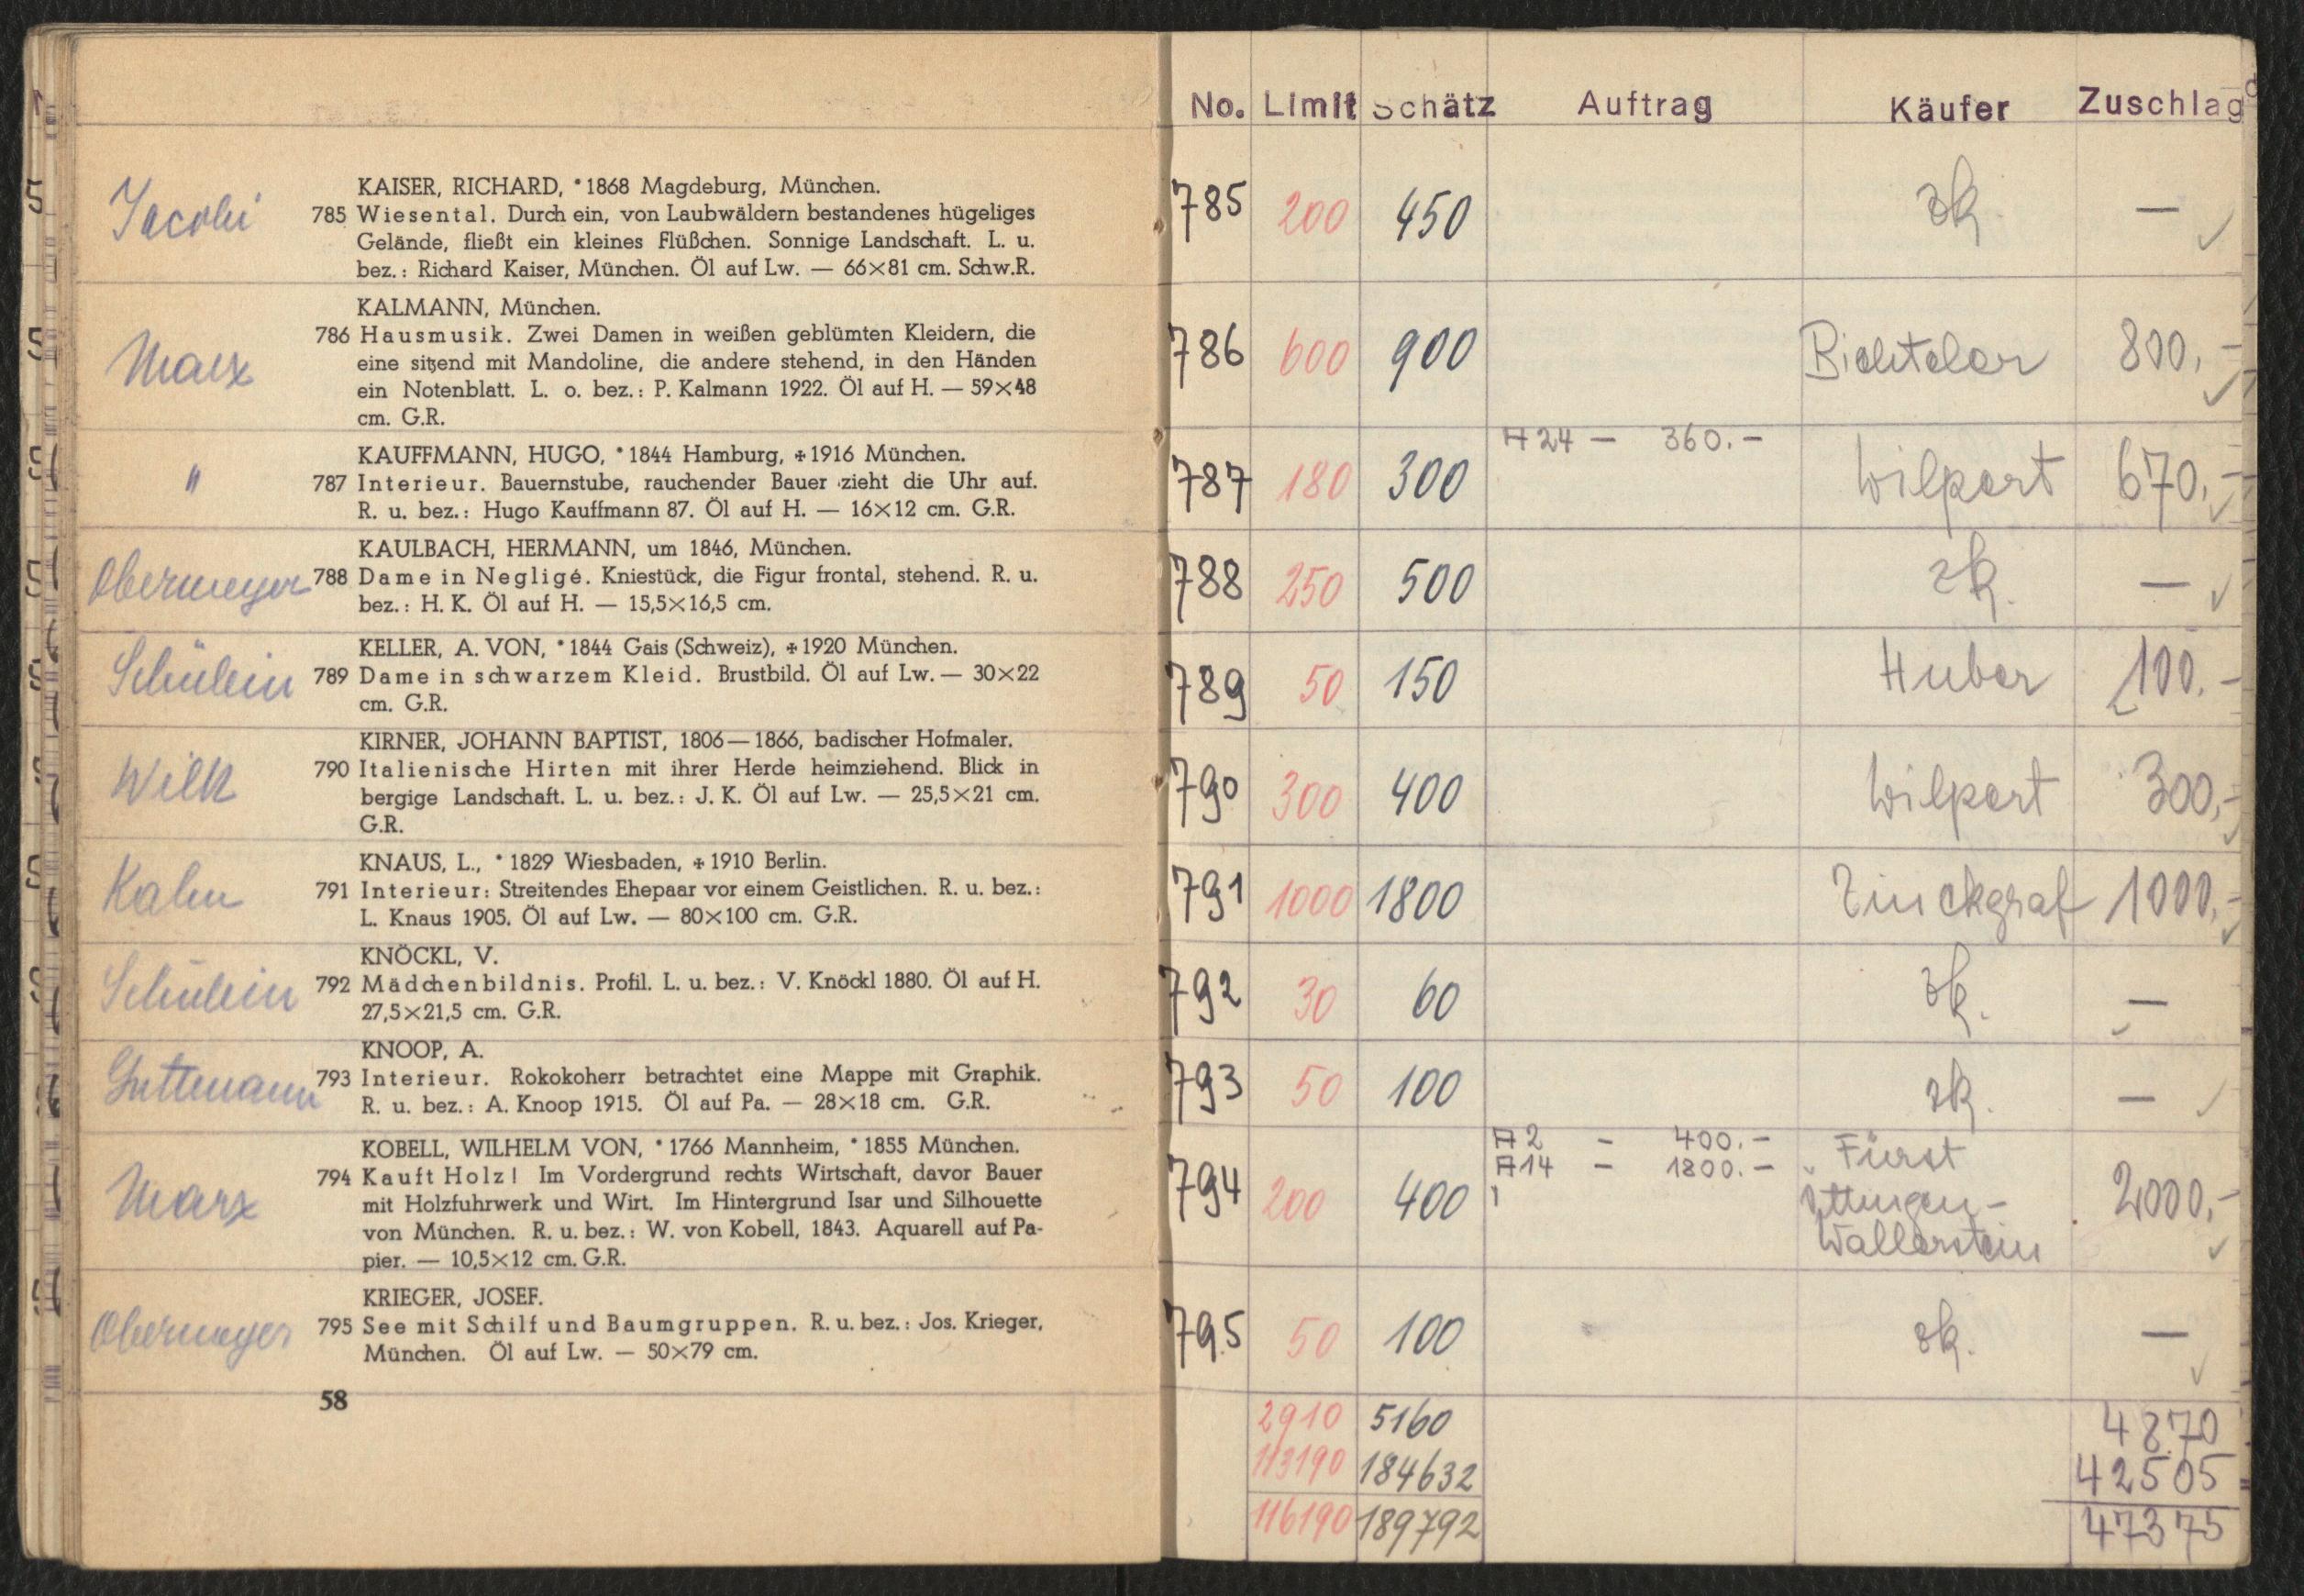 Jacobi
KAISER, RICHARD, *1868 Magdeburg, München.
785 Wiesental. Durch ein, von Laubwäldern bestandenes hügeliges
Gelände, fließt ein kleines Flüßchen. Sonnige Landschaft. L. u.
bez.: Richard Kaiser, München. Öl auf Lw. — 66×81 cm. Schw.R.
Marx
KALMANN, München.
786 Hausmusik. Zwei Damen in weißen geblümten Kleidern, die
eine sitzend mit Mandoline, die andere stehend, in den Händen
ein Notenblatt. L. o. bez.: P. Kalmann 1922. Öl auf H. — 59×48
cm. G.R.
"
KAUFFMANN, HUGO, *1844 Hamburg, ✠1916 München.
787 Interieur. Bauernstube, rauchender Bauer zieht die Uhr auf.
R. u. bez.: Hugo Kauffmann 87. Öl auf H. — 16×12 cm. G.R.
Obermeyer
KAULBACH, HERMANN, um 1846, München.
788 Dame in Negligé. Kniestück, die Figur frontal, stehend. R. u.
bez.: H. K. Öl auf H. — 15,5×16,5 cm.
Schülein
KELLER, A. VON, *1844 Gais (Schweiz), ✠1920 München.
789 Dame in schwarzem Kleid. Brustbild. Öl auf Lw. — 30×22
cm. G.R.
Wilk
KIRNER, JOHANN BAPTIST, 1806—1866, badischer Hofmaler.
790 Italienische Hirten mit ihrer Herde heimziehend. Blick in
bergige Landschaft. L. u. bez.: J. K. Öl auf Lw. — 25,5×21 cm.
G.R.
Kahn
KNAUS, L., *1829 Wiesbaden, ✠1910 Berlin.
791 Interieur: Streitendes Ehepaar vor einem Geistlichen. R. u. bez.:
L. Knaus 1905. Öl auf Lw. — 80×100 cm. G.R.
Schülein
KNÖCKL, V.
792 Mädchenbildnis. Profil. L. u. bez.: V. Knöckl 1880. Öl auf H.
27,5×21,5 cm. G.R.
Guttmann
KNOOP, A.
793 Interieur. Rokokoherr betrachtet eine Mappe mit Graphik.
R. u. bez.: A. Knoop 1915. Öl auf Pa. — 28×18 cm. G.R.
Marx
KOBELL, WILHELM VON, *1766 Mannheim, *1855 München.
794 Kauft Holz! Im Vordergrund rechts Wirtschaft, davor Bauer
mit Holzfuhrwerk und Wirt. Im Hintergrund Isar und Silhouette
von München. R. u. bez.: W. von Kobell, 1843. Aquarell auf Pa-
pier. — 10,5×12 cm. G.R.
Obermeyer
KRIEGER, JOSEF.
795 See mit Schilf und Baumgruppen. R. u. bez.: Jos. Krieger,
München. Öl auf Lw. — 50×79 cm.
58
No. Limit Schätz Auftrag Käufer Zuschlag
785 200 450 zk. —
786 600 900 Bichteler 800.-
787 180 300 A 24 — 360.- Wilpert 670.-
788 250 500 zk. —
789 50 150 Huber 100.-
790 300 400 Wilpert 300.-
791 1000 1800 Zinckgraf 1000.-
792 30 60 zk. —
793 50 100 zk. —
A 2 - 400.-
A 14 - 1800.-
794 200 400 Fürst
Öttingen-
Wallerstein 2000.-
795 50 100 zk. —
2910 5160 4870
113190 184632 42505
116190 189792 47375